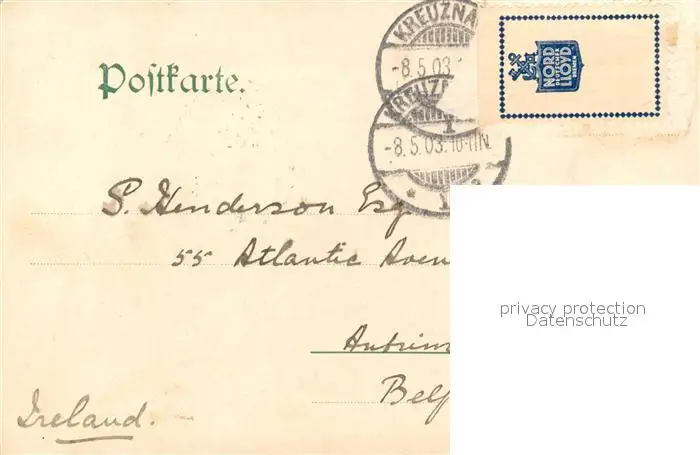 Postkarte.
KREUZNA
-8.5.03.
KREUZN
-8.5.03.10-11N.
1
NORD
DEUTSCHER
LLOYD
BREMEN
S. Henderson Esq
55 Atlantic Aven
Antrim
Belf
Ireland.
privacy protection
Datenschutz